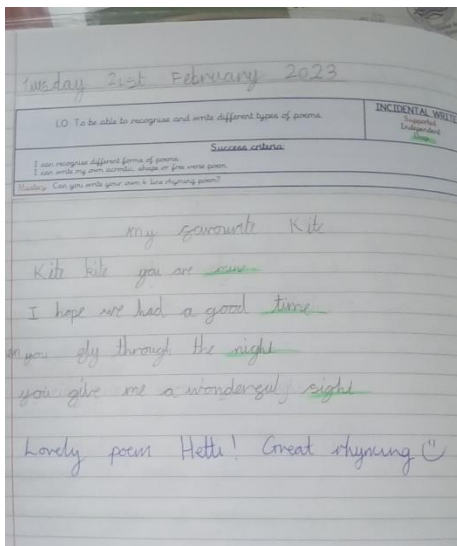 Tuesday 21st February 2023
LO: To be able to recognise and write different types of poems.
INCIDENTAL WRITE
Supported
Independent
Deep
Success criteria:
I can recognise different forms of poems.
I can write my own acrostic, shape or free verse poem.
Mastery: Can you write your own 4 line rhyming poem?
My favourite Kite
Kite kite you are mine
I hope we had a good time
you fly through the night
you give me a wonderful sight
Lovely poem Hetti! Great rhyming